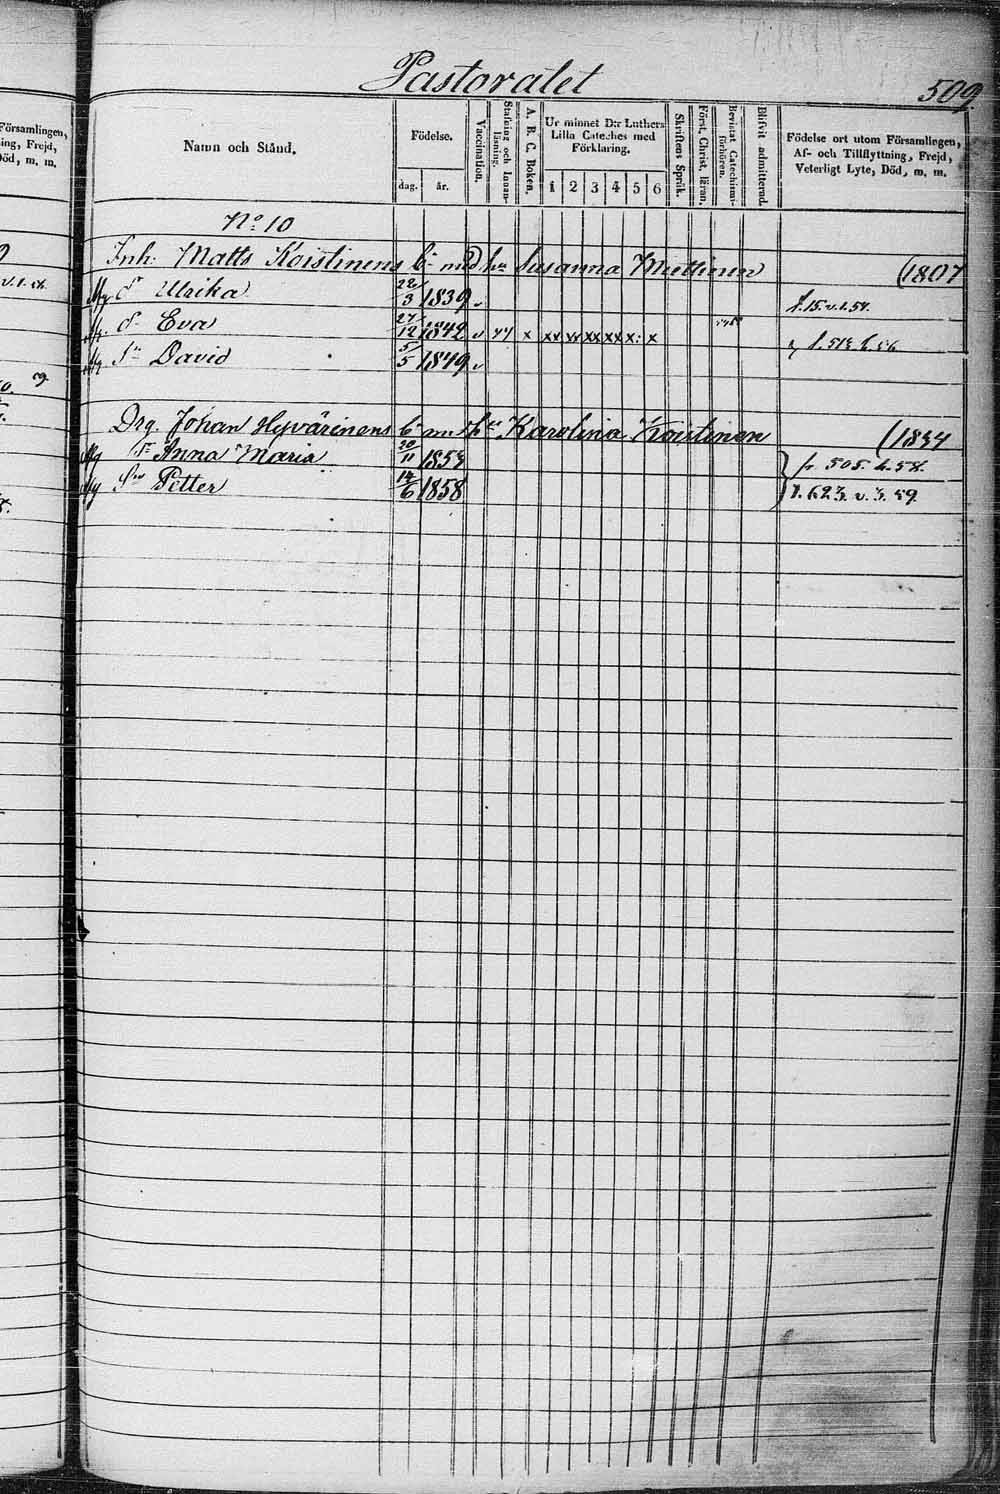 Pastoratet
509
Namn och Stånd.
Födelse.
dag. år.
Vaccination.
Stafning och Innan-läsning.
A. B. C. Boken.
Ur minnet D:r Luthers Lilla Cateches med Förklaring.
1 2 3 4 5 6
Skriftens Språk.
Först. Christ. läran.
Bevistat Catechismi-förhören.
Blifvit admitterad.
Födelse ort utom Församlingen,
Af- och Tillflyttning, Frejd,
Veterligt Lyte, Död, m. m.
Församlingen,
ing, Frejd,
Död, m. m.
No 10
Inh. Matts Koistinens b. med h. Susanna Muttinen (1807
dr Ulrika 22/3 1839 v f. 15. v. 1. 54.
dr Eva 27/12 1842 v x xx xx xx xx x: x f. 513. b. 56
Sn David 5/5 1849 v
Drg. Johan Hyvärinens b. m h. Karolina Koistinen (1834
dr Anna Maria 20/11 1854 f. 505. b. 58.
Sn Petter 14/6 1858 f. 623. v. 3. 59.